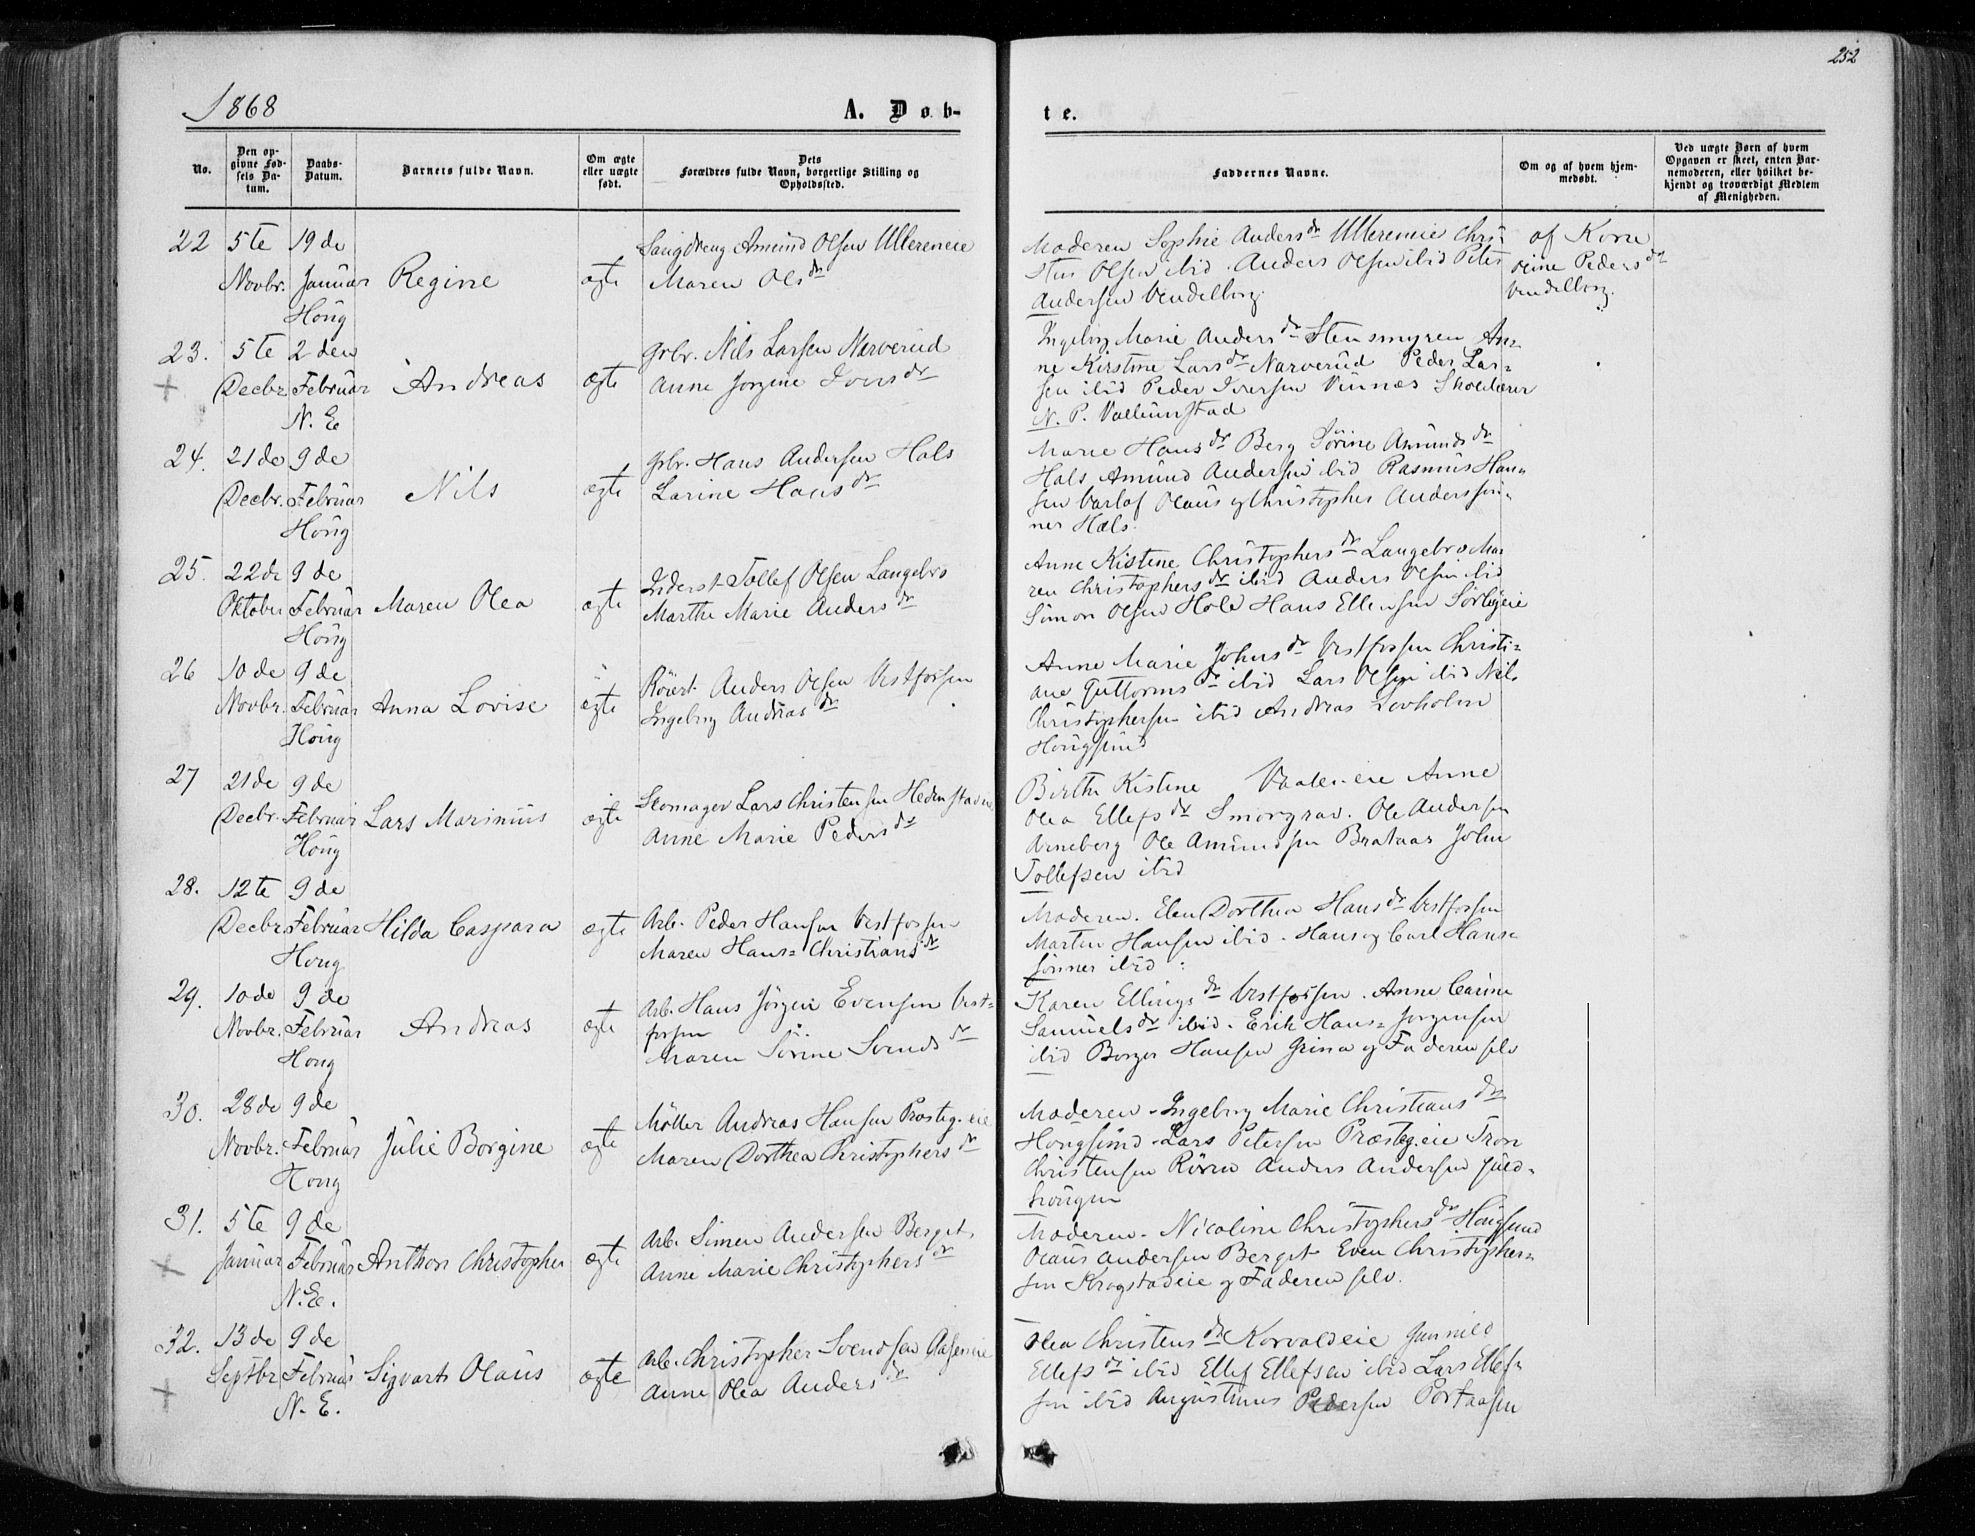 252
1868
A. Døb-
te.
No.
Den op-
givne Fød-
sels Da-
tum.
Daabs-
Datum.
Barnets fulde Navn.
Om ægte
eller uægte
født.
Dets
Forældres fulde Navn, borgerlige Stilling og
Opholdssted.
Faddernes Navne.
Om og af hvem hjem-
medøbt.
Ved uægte Børn af hvem
Opgaven er skeet, enten Bar-
nemoderen, eller hvilket be-
kjendt og troværdigt Medlem
af Menigheden.
22
5te
Novbr.
19de
Januar
Houg
Regine
ægte
Amund Olsen Ullereneie
Maren Olsdr
Moderen Sophie Andersdr Ullereneie Chri-
sten Olsen ibid. Anders Olsen ibid Peter
Andersen Vendelborg.
af Kone
Oline Pedersdr
Vendelborg.
23.
5te
Decbr
2den
Februar
N. E
Andreas
ægte
Grbr. Nils Larsen Narverud
Anne Jorgine Iversdr
Ingeborg Marie Andersdr Stensmyren An-
ne Kirstine Larsdr Narverud Peder Lar-
sen ibid Peder Iversen Vinnæs Skolelærer
N. P.
24.
21de
Decbr.
9de
Februar
Houg
Nils
ægte
Grbr. Hans Andersen Hals
Larine Hansdr
Marie Hansdr Berg Sørine Amundsdr
Hals Amund Andersen ibid Rasmus Han-
sen Varlof Olaus og Christopher Anderssøn-
ner Hals.
25.
22de
Oktober
9de
Februar
Houg
Maren Olea
ægte
Inderst Tollef Olsen Langebro
Marthe Marie Andersdr
Anne Kistine Christophersdr Langebro Ma-
ren Christophersdr ibid Anders Olsen ibid
Simon Olsen Hole Hans Ellensen
26
10de
Novbr.
9de
Februar
Houg
Anna Lovise
ægte
Anders Olsen Vestfossen
Ingeborg Andreasdr
Anne Marie Johnsdr Vestfossen Christi-
ane Guttormsdr ibid Lars Olsen ibid Nils
Christophersen ibid Andreas Lovholm
Hougsund
27
21de
Decbr.
9de
Februar
Houg
Lars Marinius
ægte
Skomager Lars Christensen Hedenstadeie
Anne Marie Pedersdr
Birthe Kistine Vaaleneie Anne
Olea Ellefsdr Smorgrav. Ole Andersen
Arneberg Ole Amundsen Brataas John
Tollefsen ibid
28.
12te
Decbr
9de
Februar
Houg
Hilda Caspara
ægte
Arb. Peder Hansen Vestfossen
Maren Hans-Christiansdr
Moderen. Elen Dorthea Hansdr Vestfossen
Martin Hansen ibid. Hans og Carl Hans-
sønner ibid.
29.
10de
Novbr.
9de
Februar
Houg
Andreas
ægte
Arb. Hans Jørgen Evensen Vest-
fossen
Maren Sørine Svendsdr
Karen Ellingsdr Vestfossen. Anne Carine
Samuelsdr ibid. Erik Hans-Jorgensen
ibid Borger Hansen Grina og Faderen selv
30.
28de
Novbr.
9de
Februar
Houg
Julie Borgine
ægte
Möller Andreas Hansen Præsteg.eie
Maren Dorthea Christophersdr
Moderen. Ingeborg Marie Christiansdr
Hougsund. Lars Petersen Præsteg.eie Tron
Christensen Røren Anders Andersen Guld-
hougen
31.
5te
Januar
9de
Februar
N.E.
Anthon Christopher
ægte
Arb. Simen Andersen Berget
Anne Marie Christophersdr
Moderen. Nicoline Christophersdr Hougsund
Olaus Andersen Berget Even Christopher-
sen Krogstadeie og Faderen selv.
32.
13de
Septbr
9de
Februar
N.E.
Sigvart Olaus
ægte
Arb. Christopher Svendsen Aaseneie
Anne Olea Andersdr
Olea Christensdr Korvaldeie Gunnild
Ellefsdr ibid Ellef Ellefsen ibid Lars Ellef-
sen ibid Augustinus Pedersen Portaasen